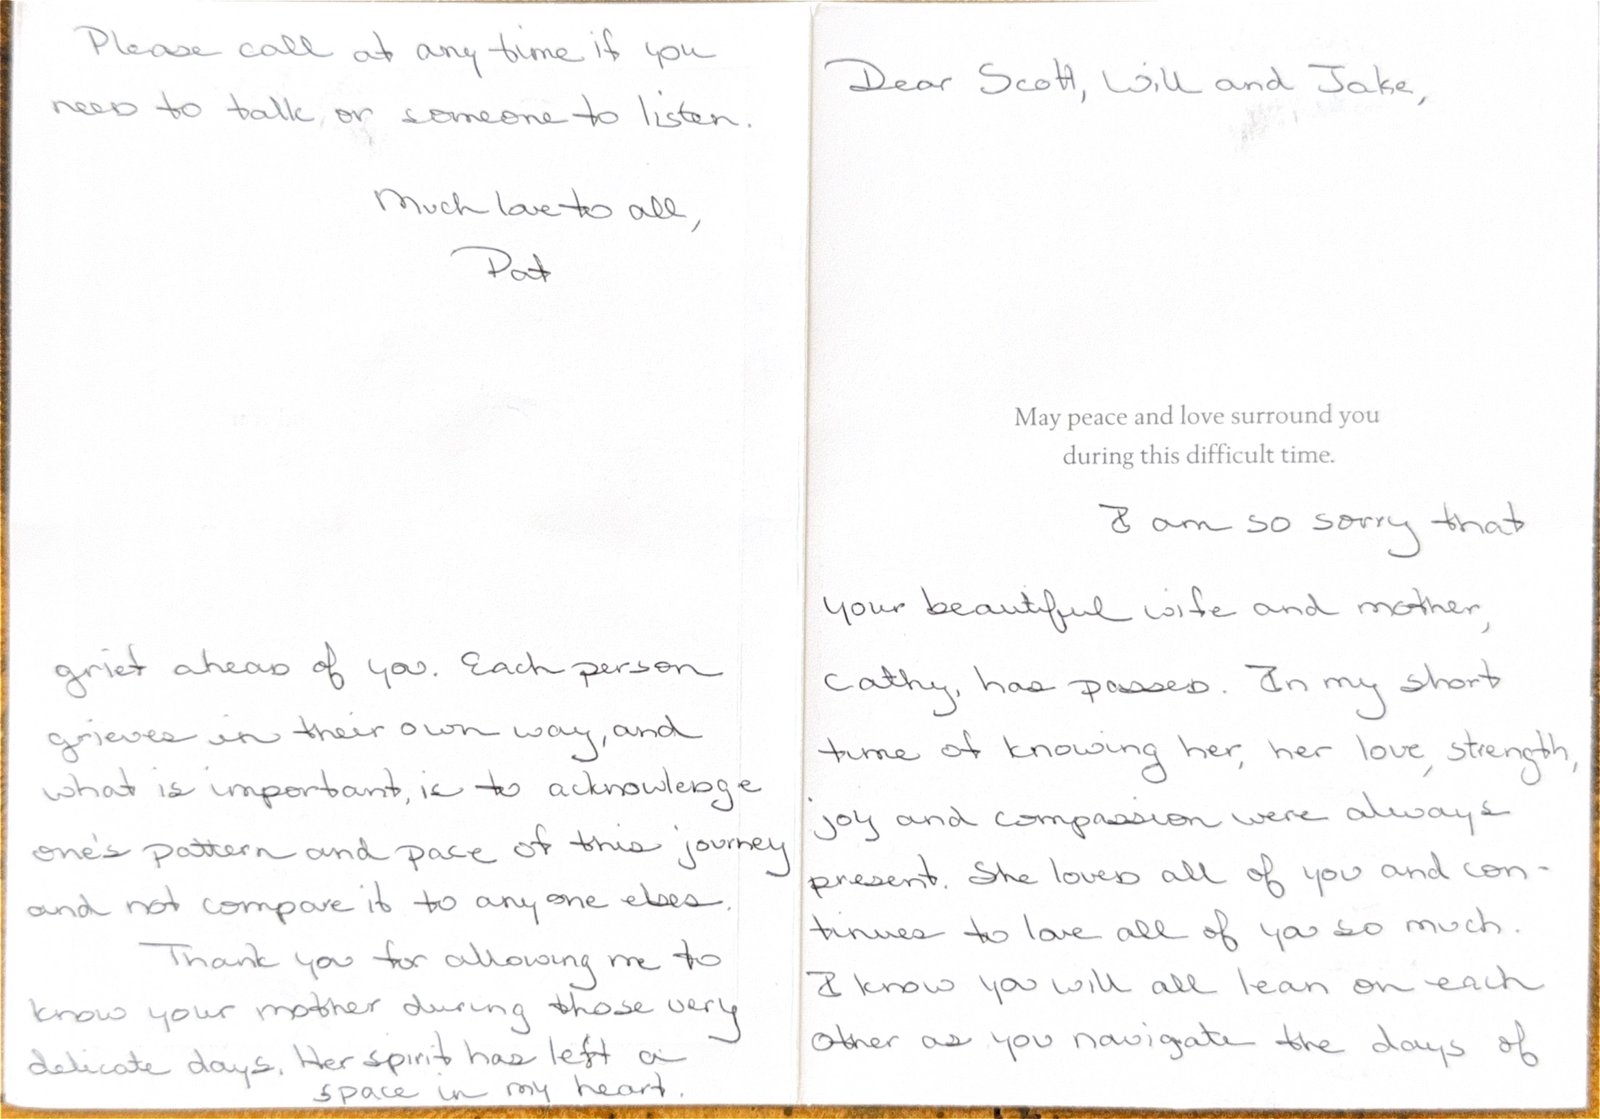 Dear Scott, Will and Jake,
May peace and love surround you
during this difficult time.
I am so sorry that
your beautiful wife and mother,
Cathy, has passed. In my short
time of knowing her, her love, strength,
joy and compassion were always
present. She loved all of you and con-
tinues to love all of you so much.
I know you will all lean on each
other as you navigate the days of
grief ahead of you. Each person
grieves in their own way, and
what is important, is to acknowledge
one's pattern and pace of this journey
and not compare it to anyone elses.
Thank you for allowing me to
know your mother during those very
delicate days. Her spirit has left a
space in my heart.
Please call at any time if you
need to talk, or someone to listen.
Much love to all,
Pat